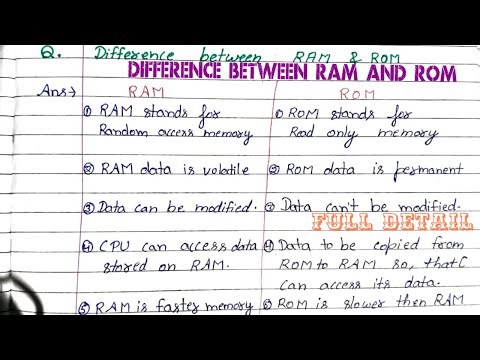 Q. Difference between RAM & ROM
DIFFERENCE BETWEEN RAM AND ROM
Ans→
RAM
① RAM stands for
Random access memory
② RAM data is volatile
③ Data can be modified.
④ CPU can access data
stored on RAM.
⑤ RAM is faster memory
ROM
① ROM stands for
Read only memory
② ROM data is permanent
③ Data can't be modified.
FULL DETAIL
④ Data to be copied from
ROM to RAM so, that C
can access its data.
⑤ ROM is slower then RAM